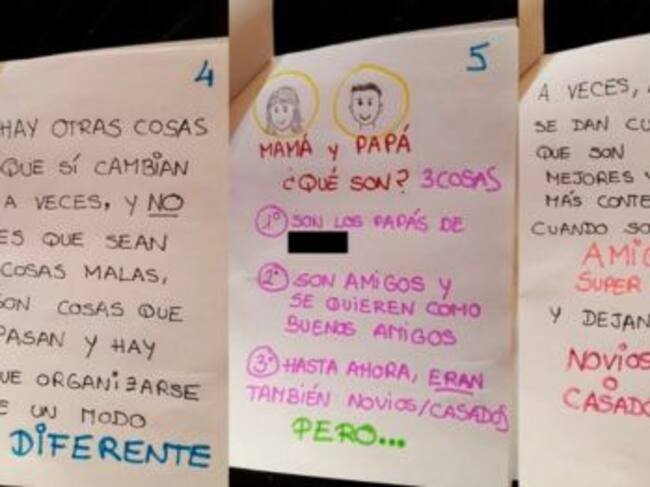 4
HAY OTRAS COSAS
QUE SÍ CAMBIAN
A VECES, Y NO
ES QUE SEAN
COSAS MALAS,
SON COSAS QUE
PASAN Y HAY
UE ORGANIZARSE
E UN MODO
DIFERENTE
5
MAMÁ Y PAPÁ
¿QUÉ SON? 3 COSAS
1º SON LOS PAPÁS DE
2º SON AMIGOS Y
SE QUIEREN COMO
BUENOS AMIGOS
3º HASTA AHORA, ERAN
TAMBIÉN NOVIOS/CASADOS
PERO...
A VECES,
SE DAN CU
QUE SON
MEJORES Y
MÁS CONTE
CUANDO SO
AMIG
SUPER
Y DEJAN
NOVIOS
O
CASADO